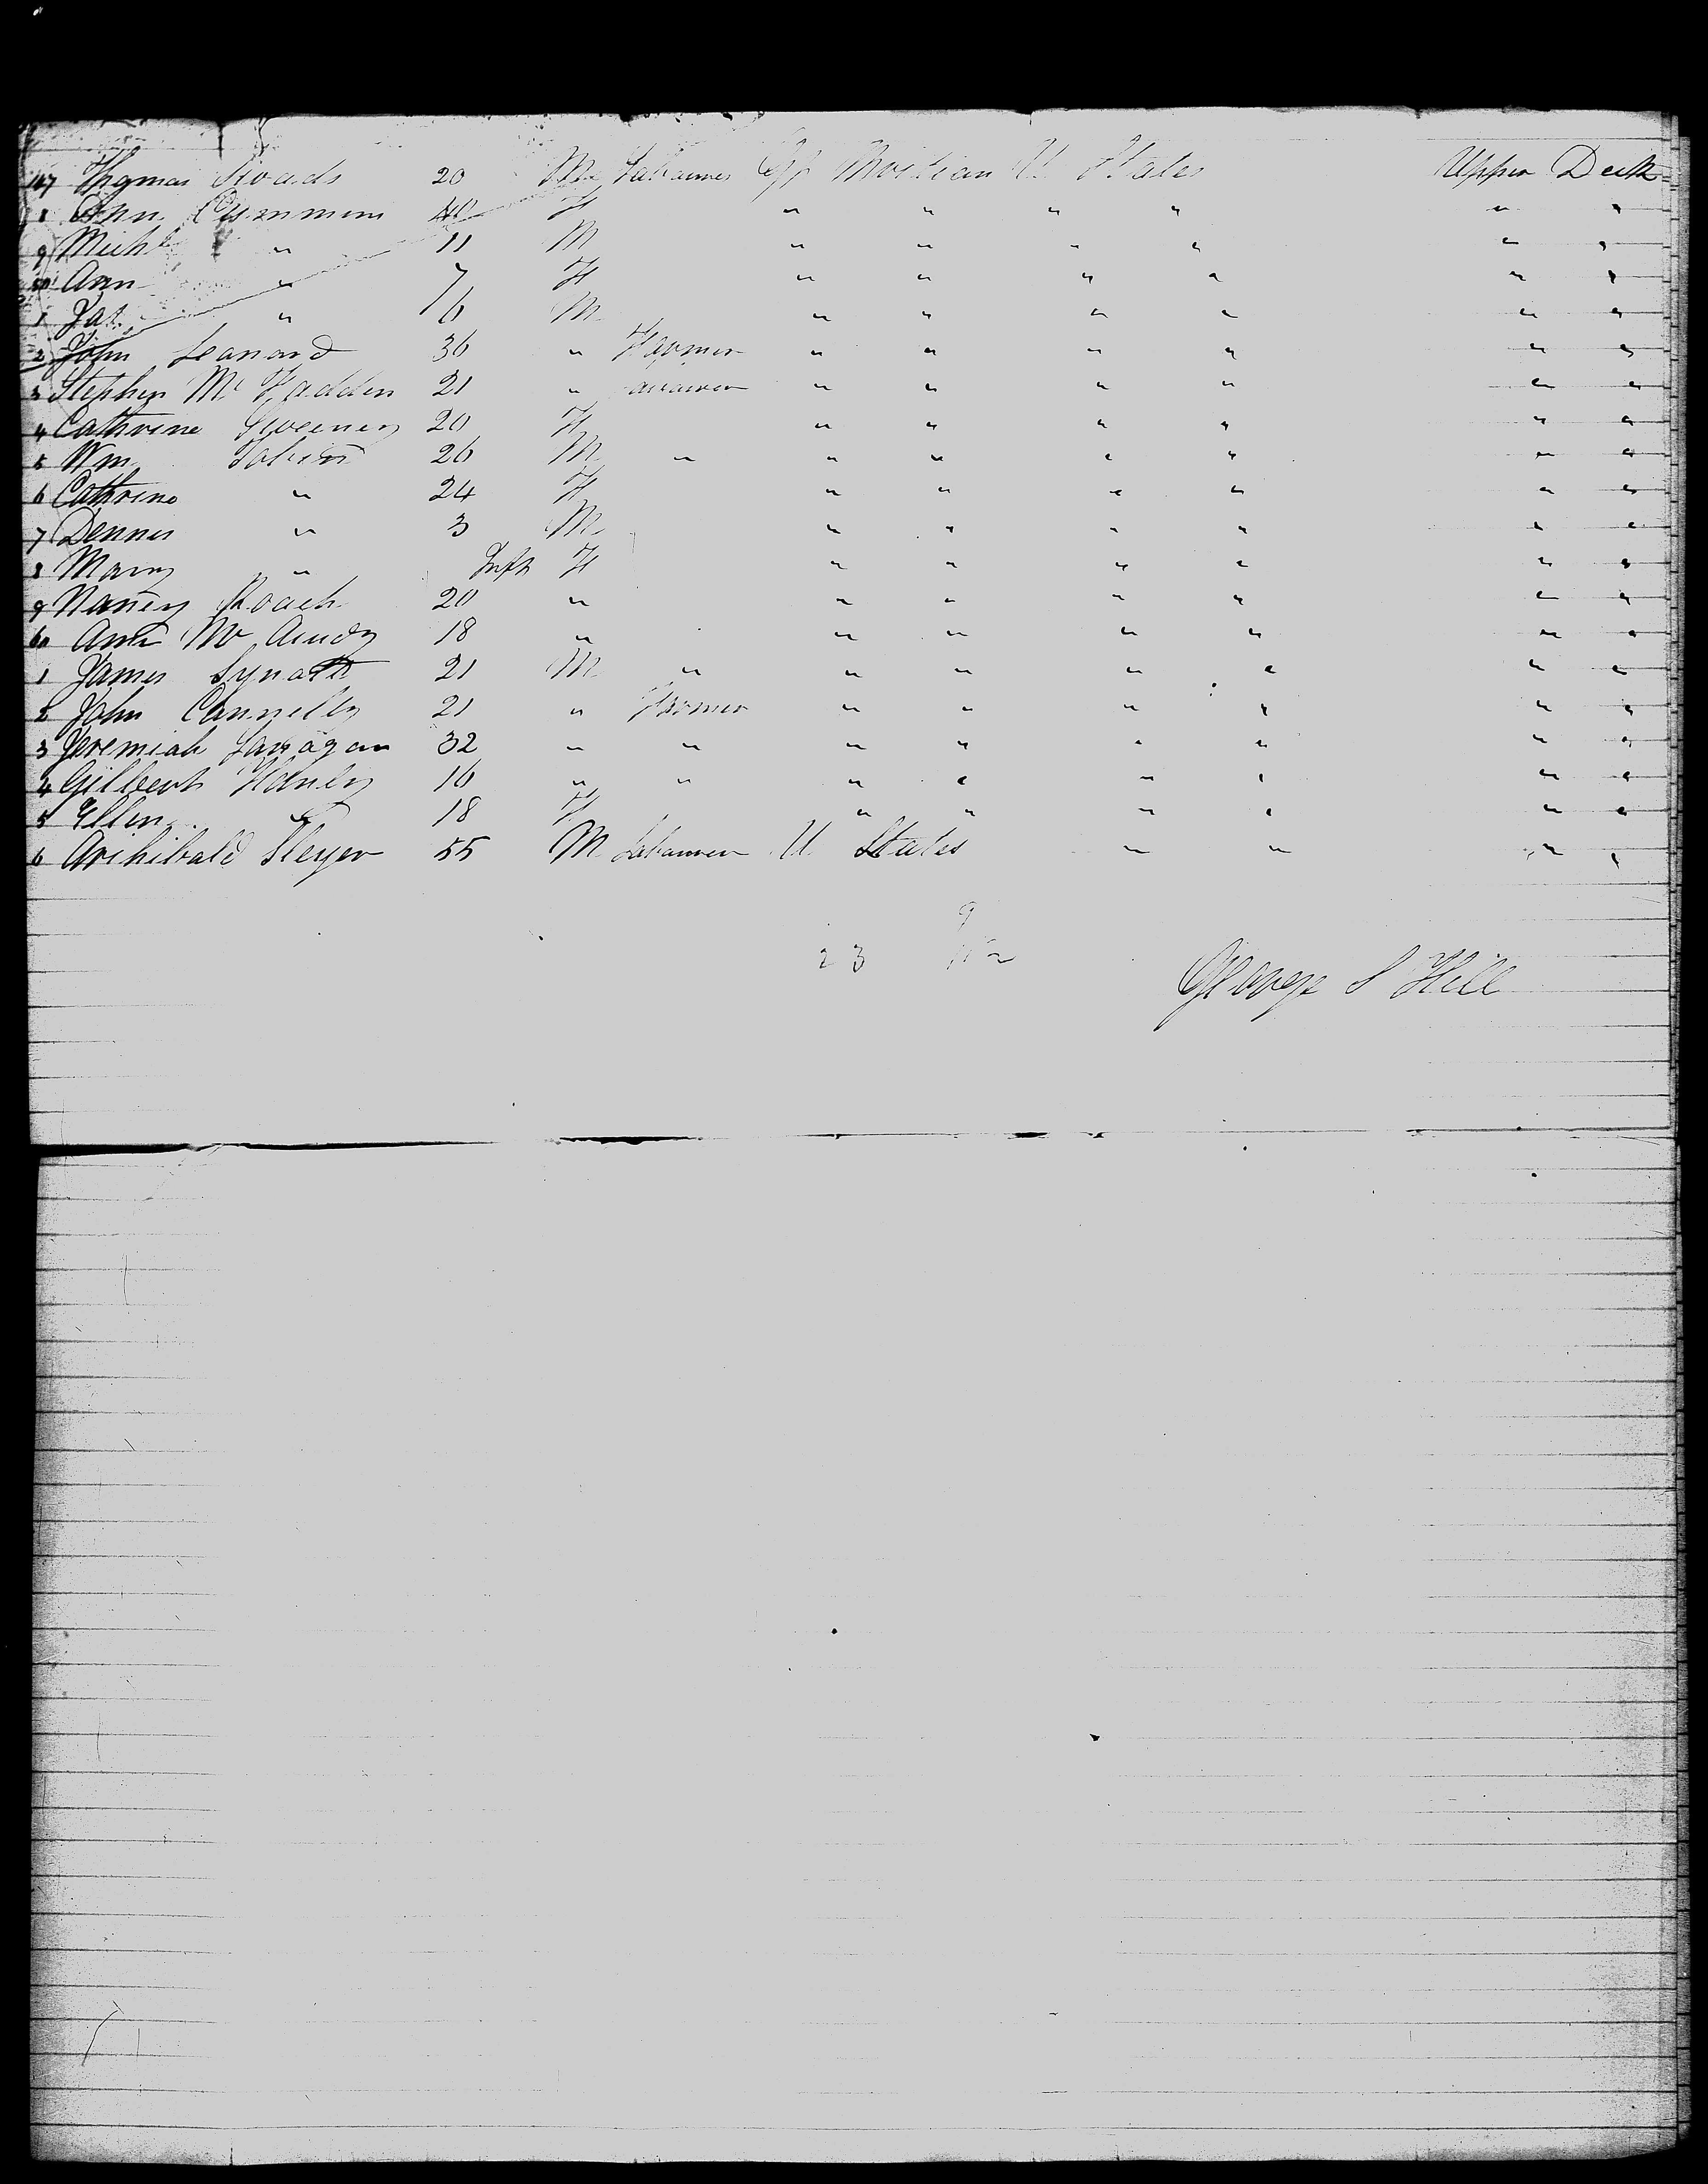 147 Thomas Swords 20 M Labourer Gt Brittian U States Upper Deck
8 Ann Cummins 40 F " " " " " "
9 Michl " 11 M " " " " " "
50 Ann " 7 F " " " " " "
1 Jas " 6 M " " " " " "
2 John Leanard 36 " Farmer " " " " " "
3 Stephen Mc Fadden 21 " " " " " " "
4 Cathrine Sweeney 20 F " " " " " "
5 Wm Tobin 26 M " " " " " " "
6 Cathrine " 24 F " " " " " "
7 Dennis " 3 M " " " " " "
8 Mary " Inft F " " " " " "
9 Nancy Roach 20 " " " " " " "
60 Ann Mc 18 " " " " " " "
1 James 21 M " " " " " " "
2 John Connelly 21 " Farmer " " " " " "
3 Jeremiah Lanagan 32 " " " " " " " "
4 Gilbert Hanley 16 " " " " " " " "
5 Ellen " 18 F " " " " " "
6 Archibald 55 M Labourer U States " " " "
9
23
George S Hill